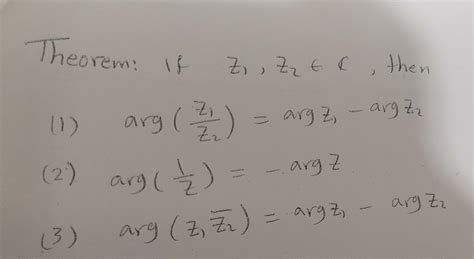 Theorem: If z₁, z₂ ∈ ℂ, then
(1) arg(z₁/z₂) = arg z₁ - arg z₂
(2) arg(1/z) = - arg z
(3) arg(z₁z̅₂) = arg z₁ - arg z₂